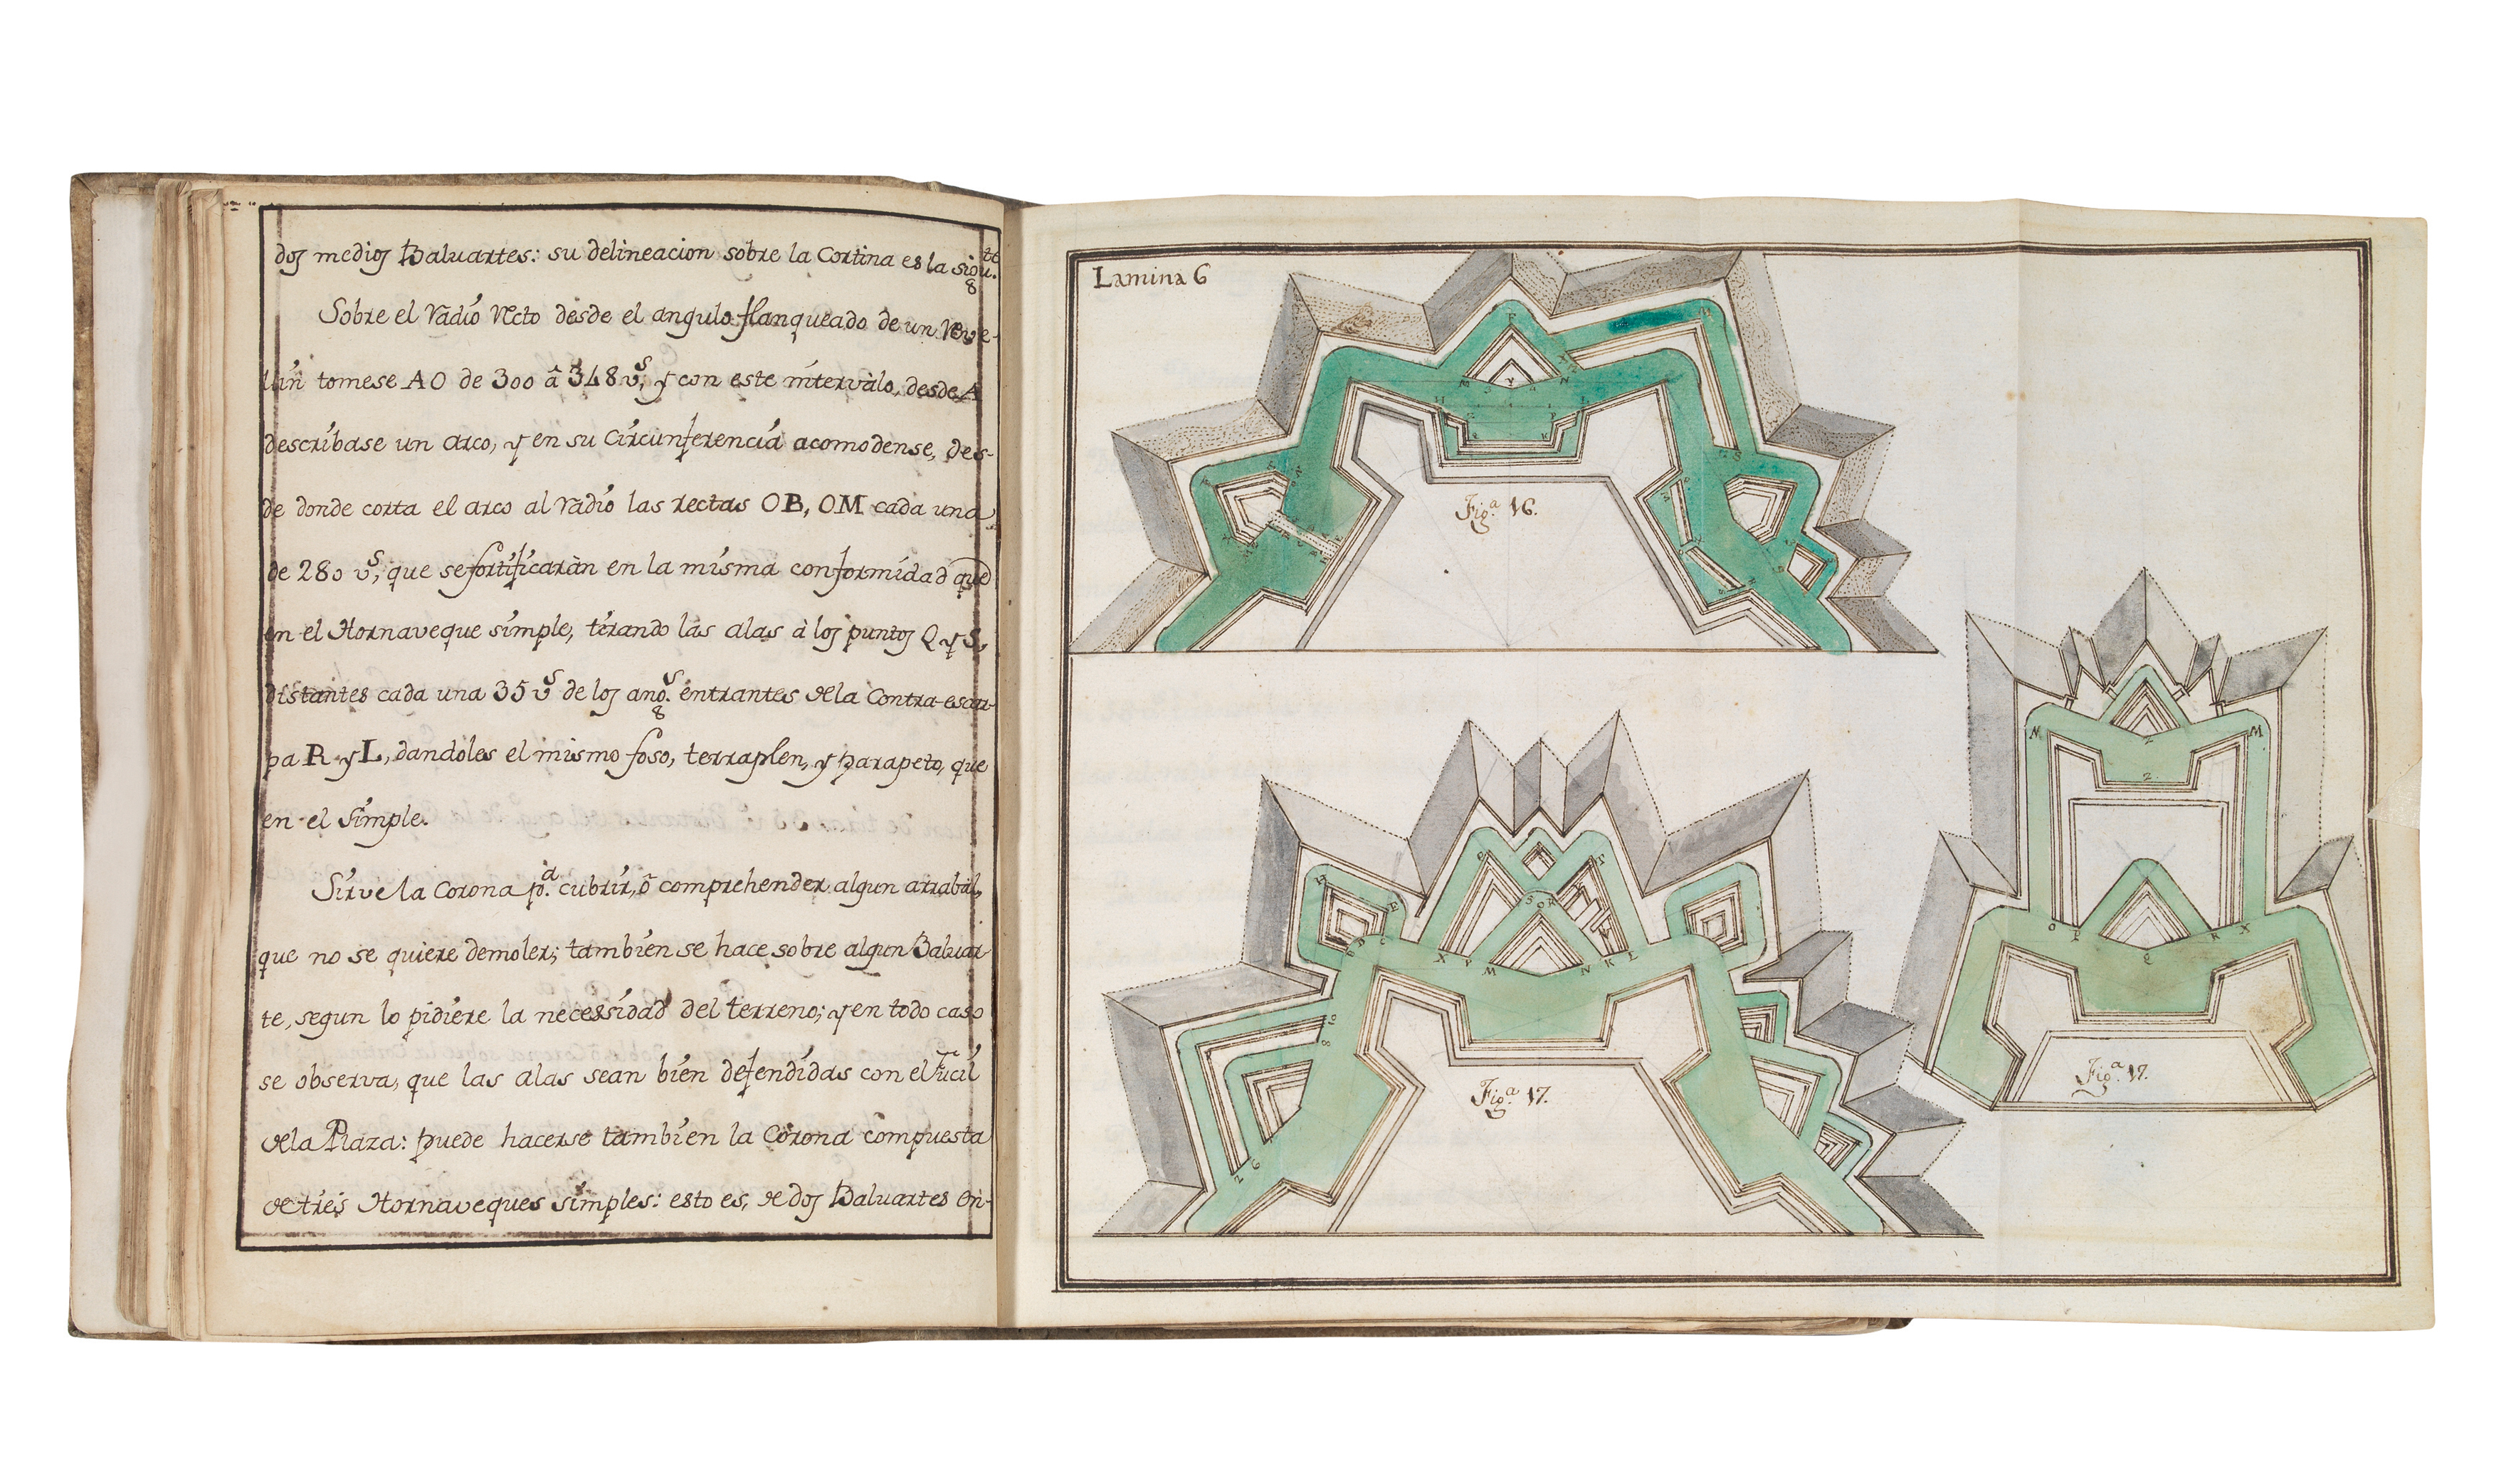 dos medios Baluartes: su delineacion sobre la Cortina es la sigu.te
Sobre el Radio Recto desde el angulo flanqueado de un Reve-
lin tomese AO de 300 â 348 v.s, y con este intervalo, desde A
describase un arco, y en su Circunferencia acomodense, des-
de donde corta el arco al radio las rectas OB, OM cada una
de 280 v.s, que se fortificaràn en la misma conformidad que
en el Hornaveque simple, tirando las alas à los puntos Q y S,
distantes cada una 35 v.s de los ang.s entrantes de la Contra-escar-
pa R y L, dandoles el mismo foso, terraplen, y parapeto, que
en el Simple.
Sirve la Corona p.a cubrir, ô comprehender algun arrabal,
que no se quiere demoler; tambien se hace sobre algun Baluar-
te, segun lo pidiere la necessidad del terreno; y en todo caso
se observa, que las alas sean bien defendidas con el fucil
de la Plaza: puede hacerse tambien la Corona compuesta
de tres Hornaveques simples: esto es, de dos Baluartes en-
Lamina 6
Fig.a 16.
Fig.a 17.
Fig.a 17.